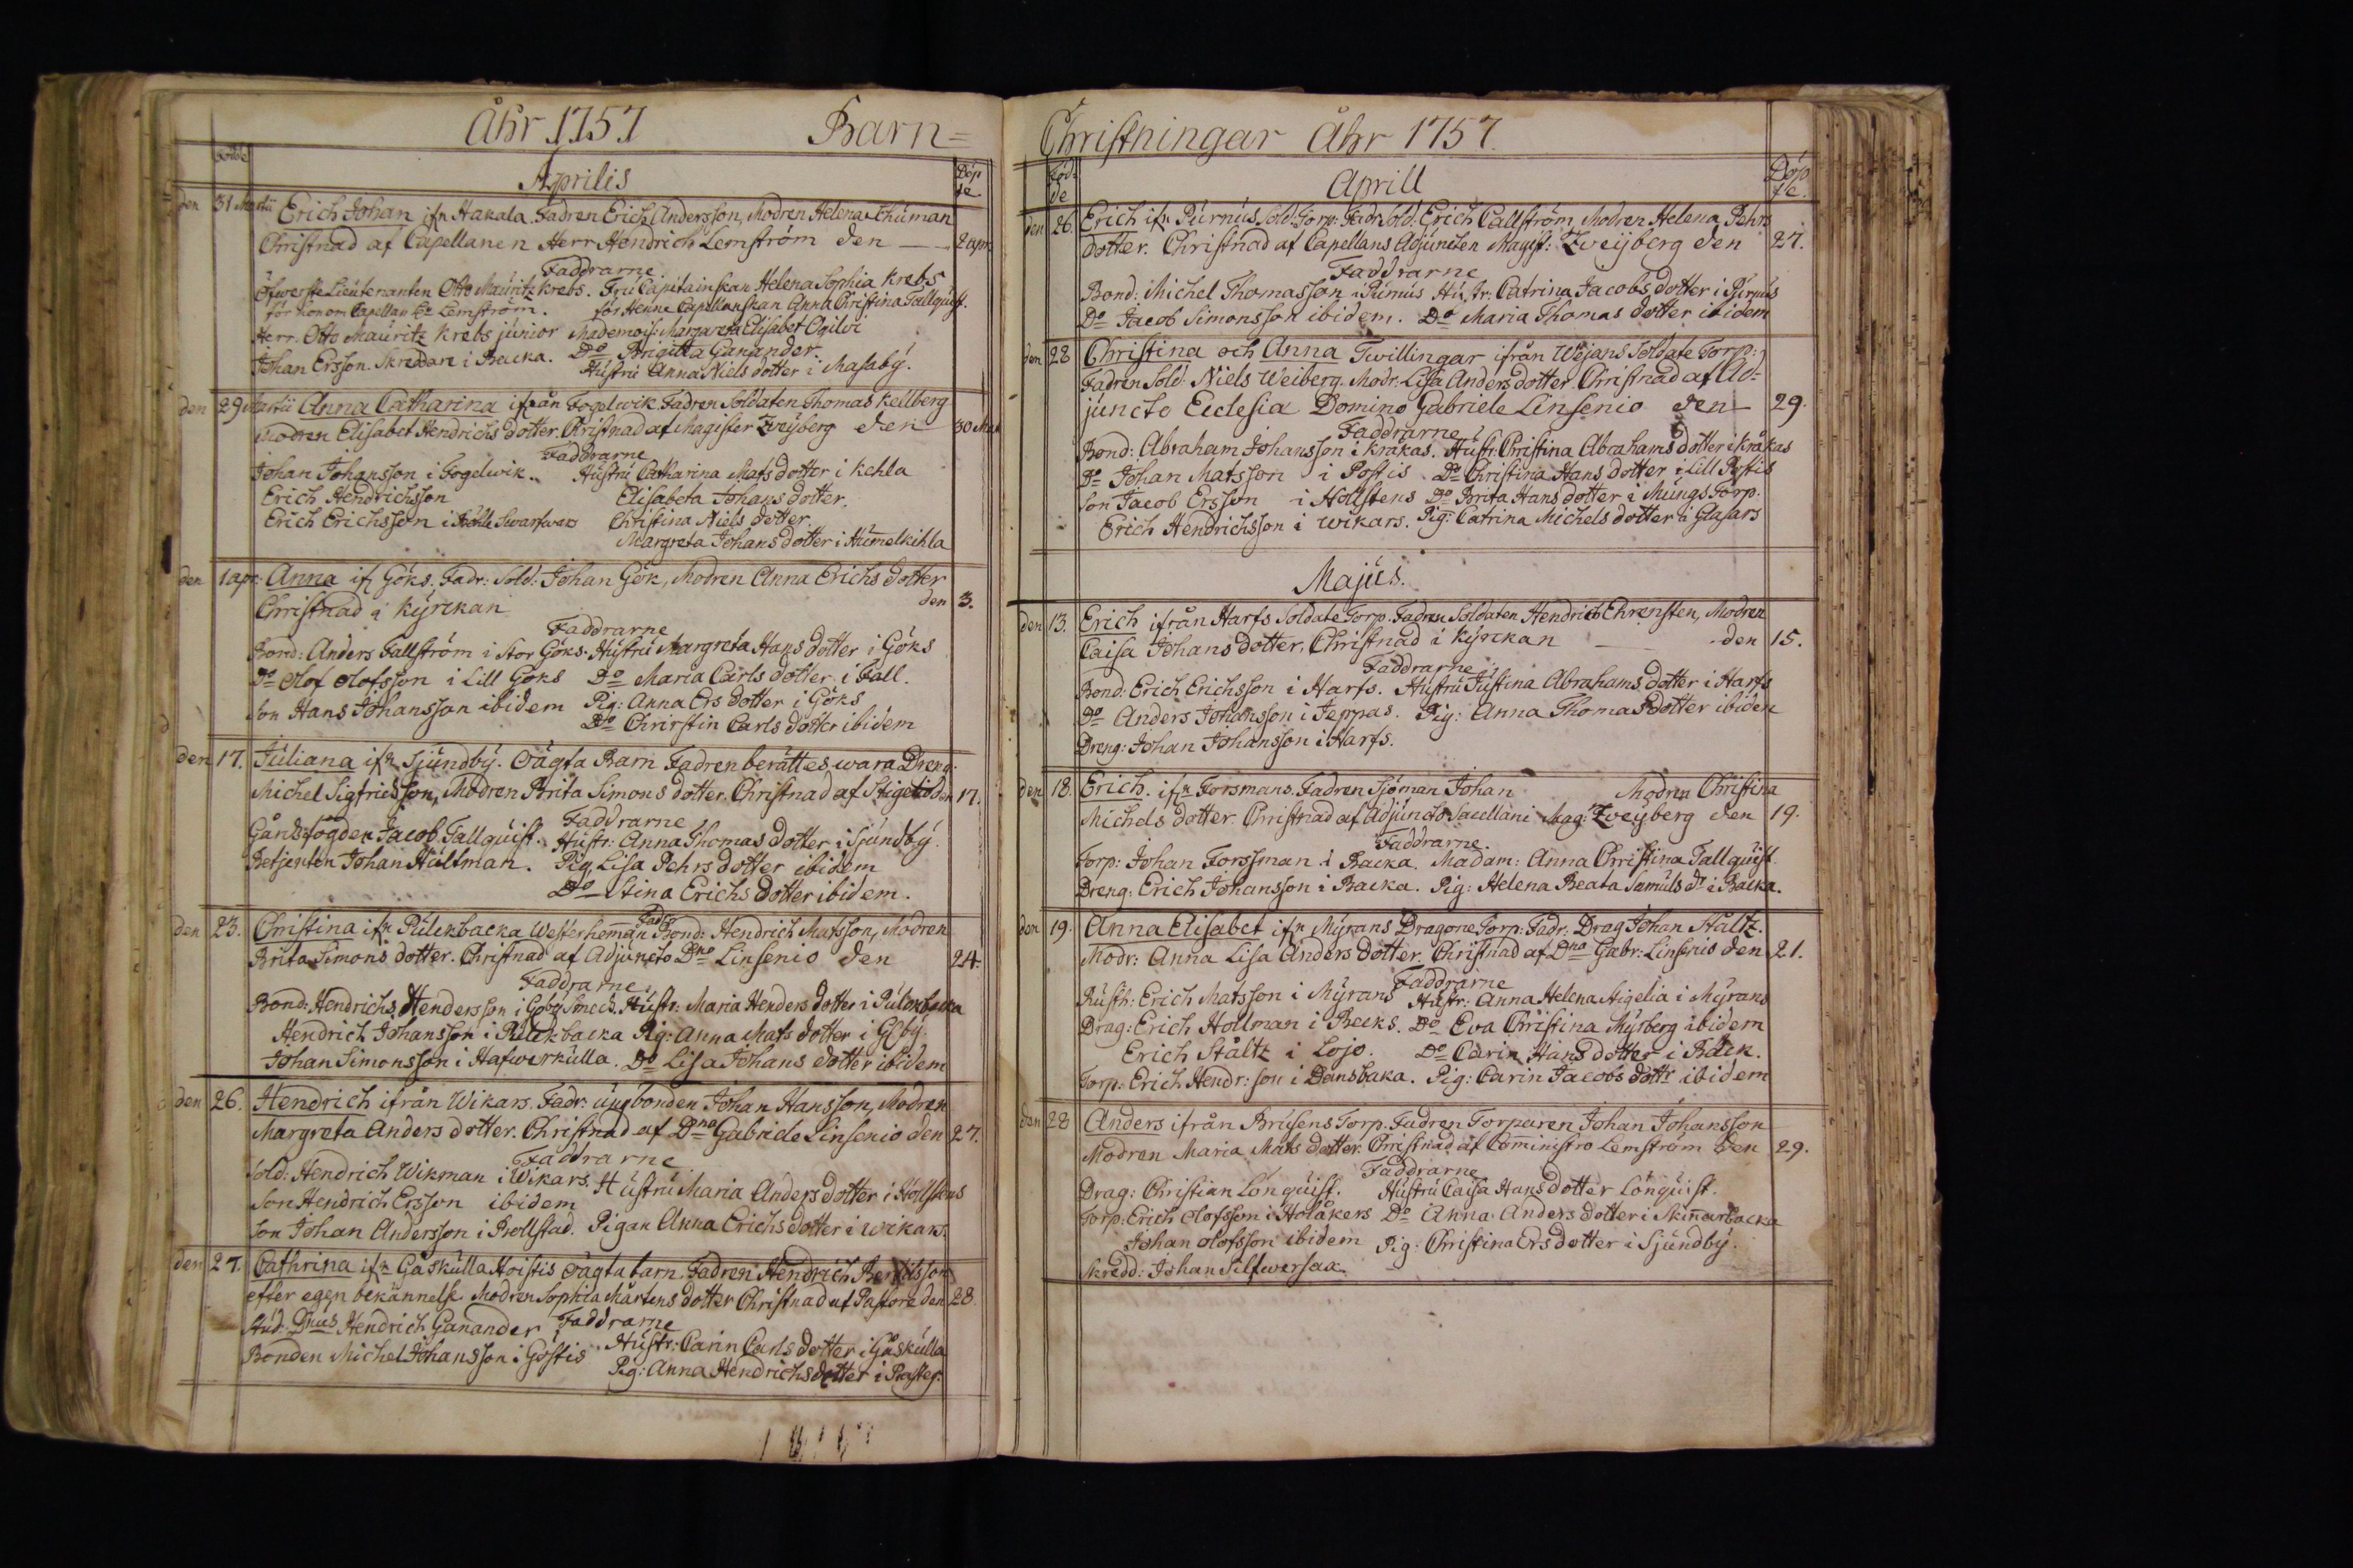 Åhr 1757 Barn=
födde
Aprilis
Döpte.
den 31 Martii Erich Johan ifn Hakala. Fadren Erich Andersson, Modren Helena Thuman
Christnad af Capellanen Herr Hendrich Lemström den — 2 apr.
Faddrarne.
Öfwerste Lieutenanten Otto Mauritz Krebs. Fru Capitainskan Helena Sophia Krebs
för honom Capellan Lemström. för Henne Capellanskan Anna Christina Tallquist.
Herr. Otto Mauritz Krebs junior Mademois: Margareta Elisabet Ogilvi
Do Brigitta Ganander.
Johan Ersson Skreddare i Backa. Hustru Anna Niels dotter i Masaby.
den 29 Martii Anna Catharina ifrån Fogelwik Fadren Soldaten Thomas Kellberg
Modren Elisabet Hendrichs dotter. Christnad af Magister Zweyberg den 30 Mart
Faddrarne
Johan Johansson i Fogelwik. Hustru Catharina Mats dotter i Kehla
Erich Hendrichsson Elisabeta Johans dotter.
Erich Erichsson i Swarfwars Christina Niels dotter.
Margreta Johans dotter i Humelkihla
den 1 apr: Anna ifn Göks. Fadr: Sold: Johan Gök, Modren Anna Erichs dotter
Christnad i Kyrckan den 3.
Faddrarne
Bond: Anders Fallström i Stor Göks. Hustru Margreta Hans dotter i Göks
Do Olof Olofsson i Lill Göks Do Maria Carls dotter i Fall.
Son Hans Johansson ibidem Pig: Anna Ers dotter i Göks
Do Christin Carls dotter ibidem
den 17. Juliana ifn Sjundby. Oägta Barn Fadren berättes wara Dreng
Michel Sigfridsson, Modren Brita Simons dotter. Christnad af Stigelio den 17.
Faddrarne
Gårdsfogden Jacob Tallquist. Hustr: Anna Thomas dotter i Sjundby.
Betjenten Johan Hultman. Pig Lisa Pehrs dotter ibidem
Do Stina Erichs dotter ibidem.
den 23. Christina ifn Pulckbacka Westerheman Fadr. Bond: Hendrich Matsson, Modren
Brita Simons dotter. Christnad af Adjuncto Dno Linsenio den 24.
Faddrarne
Bond: Hendrichs Hendersson i Göby Smeds. Hustr: Maria Henders dotter i Pulckbacka
Hendrich Johansson i Pulckbacka Pig: Anna Mats dotter i Göby.
Johan Simonsson i Hafwerkulla. Do Lisa Johans dotter ibidem
den 26. Hendrich ifrån Wikars. Fadr: ungbonden Johan Hansson, Modren
Margreta Anders dotter. Christnad af Dno Gabriele Linsenio den 27.
Faddrarne
Sold: Hendrich Wikman i Wikars. Hustru Maria Anders dotter i Hollstens
Son Hendrich Ersson ibidem
Son Johan Andersson i Bollstad. Pigan Anna Erichs dotter i Wikars.
den 27. Cathrina ifn Gåskulla Hoistis oägta barn. Fadren Hendrich Bertilsson
efter egen bekännelse Modren Sophia Mårtens dotter Christnad af Pastore den 28
Faddrarne
Stud: Dnus Hendrich Ganander Hustr: Carin Carls dotter i Gåskulla
Bonden Michel Johansson i Göstis Pig: Anna Hendrichsdotter i Presteg:
Christningar Åhr 1757.
föd-
de
Aprill
Döp
te.
den 26. Erich ifn Purnus Sold: Torp: Fadr. Sold. Erich Callström, Modren Helena Pehrs
dotter. Christnad af Capellans Adjuncten Magist: Zweyberg den 27.
Faddrarne
Bond: Michel Thomasson i Purnus Hustr: Catrina Jacobs dotter i Purnus
Do Jacob Simonsson ibidem. Do Maria Thomas dotter ibidem
den 28 Christina och Anna Twillingar ifrån Wejans Soldate Torp:
Fadren Sold: Niels Weiberg. Modr: Lisa Anders dotter. Christnad af Ad-
juncto Ecclesia Domino Gabriele Linsenio den 29.
Faddrarne
Bond: Abraham Johansson i Kråkas. Hustr: Christina Abrahams dotter i Kråkas
Do Johan Matsson i Postis Do Christina Hans dotter i Lill Postis
Son Jacob Ersson i Hollstens Do Brita Hans dotter i Mungs Torp.
Erich Hendrichsson i Wikars. Pig: Catrina Michels dotter i Glasars
Majus.
den 13. Erich ifrån Harfs Soldate Torp. Fadren Soldaten Hendrich Ehrensten, Modren
Caisa Johans dotter. Christnad i Kyrckan — den 15.
Faddrarne
Bond: Erich Erichsson i Harfs. Hustru Justina Abrahams dotter i Harfs
Do Anders Johansson i Jeppas. Pig: Anna Thomas dotter ibidem
Dreng: Johan Johansson i Harfs.
den 18. Erich. ifn Forsmans. Fadren Sjöman Johan Modren Christina
Michels dotter. Christnad af Adjuncto Sacellani Mag: Zweyberg den 19.
Faddrarne.
Torp: Johan Forssman i Backa. Madam: Anna Christina Tallquist
Dreng: Erich Johansson i Backa. Pig: Helena Beata Samuls dr i Backa.
den 19. Anna Elisabet ifn Myrans Dragone Torp: Fadr: Drag Johan Ståltz.
Modr: Anna Lisa Anders dotter. Christnad af Dno Gabr: Linsenio den 21.
Faddrarne
Rusth: Erich Matsson i Myrans Hustr: Anna Helena Aigelia i Myrans
Drag: Erich Hollman i Becks. Do Eva Christina Myrberg ibidem
Erich Ståltz i Lojo. Do Carin Hans dotter i Bäck.
Torp: Erich Hendr: son i Dansbaka. Pig: Carin Jacobs dottr ibidem
den 28 Anders ifrån Brusens Torp. Fadren Torparen Johan Johansson
Modren Maria Mats dotter. Christnad af Cominustro Lemström den 29.
Faddrarne
Drag: Christian Lönquist. Hustru Caisa Hansdotter Lönquist.
Torp: Erich Olofsson i Holåkers Do Anna Anders dotter i Skinarbacka
Johan Olofsson ibidem Pig: Christina Ers dotter i Sjundby.
Skredd: Johan Silfwersax.